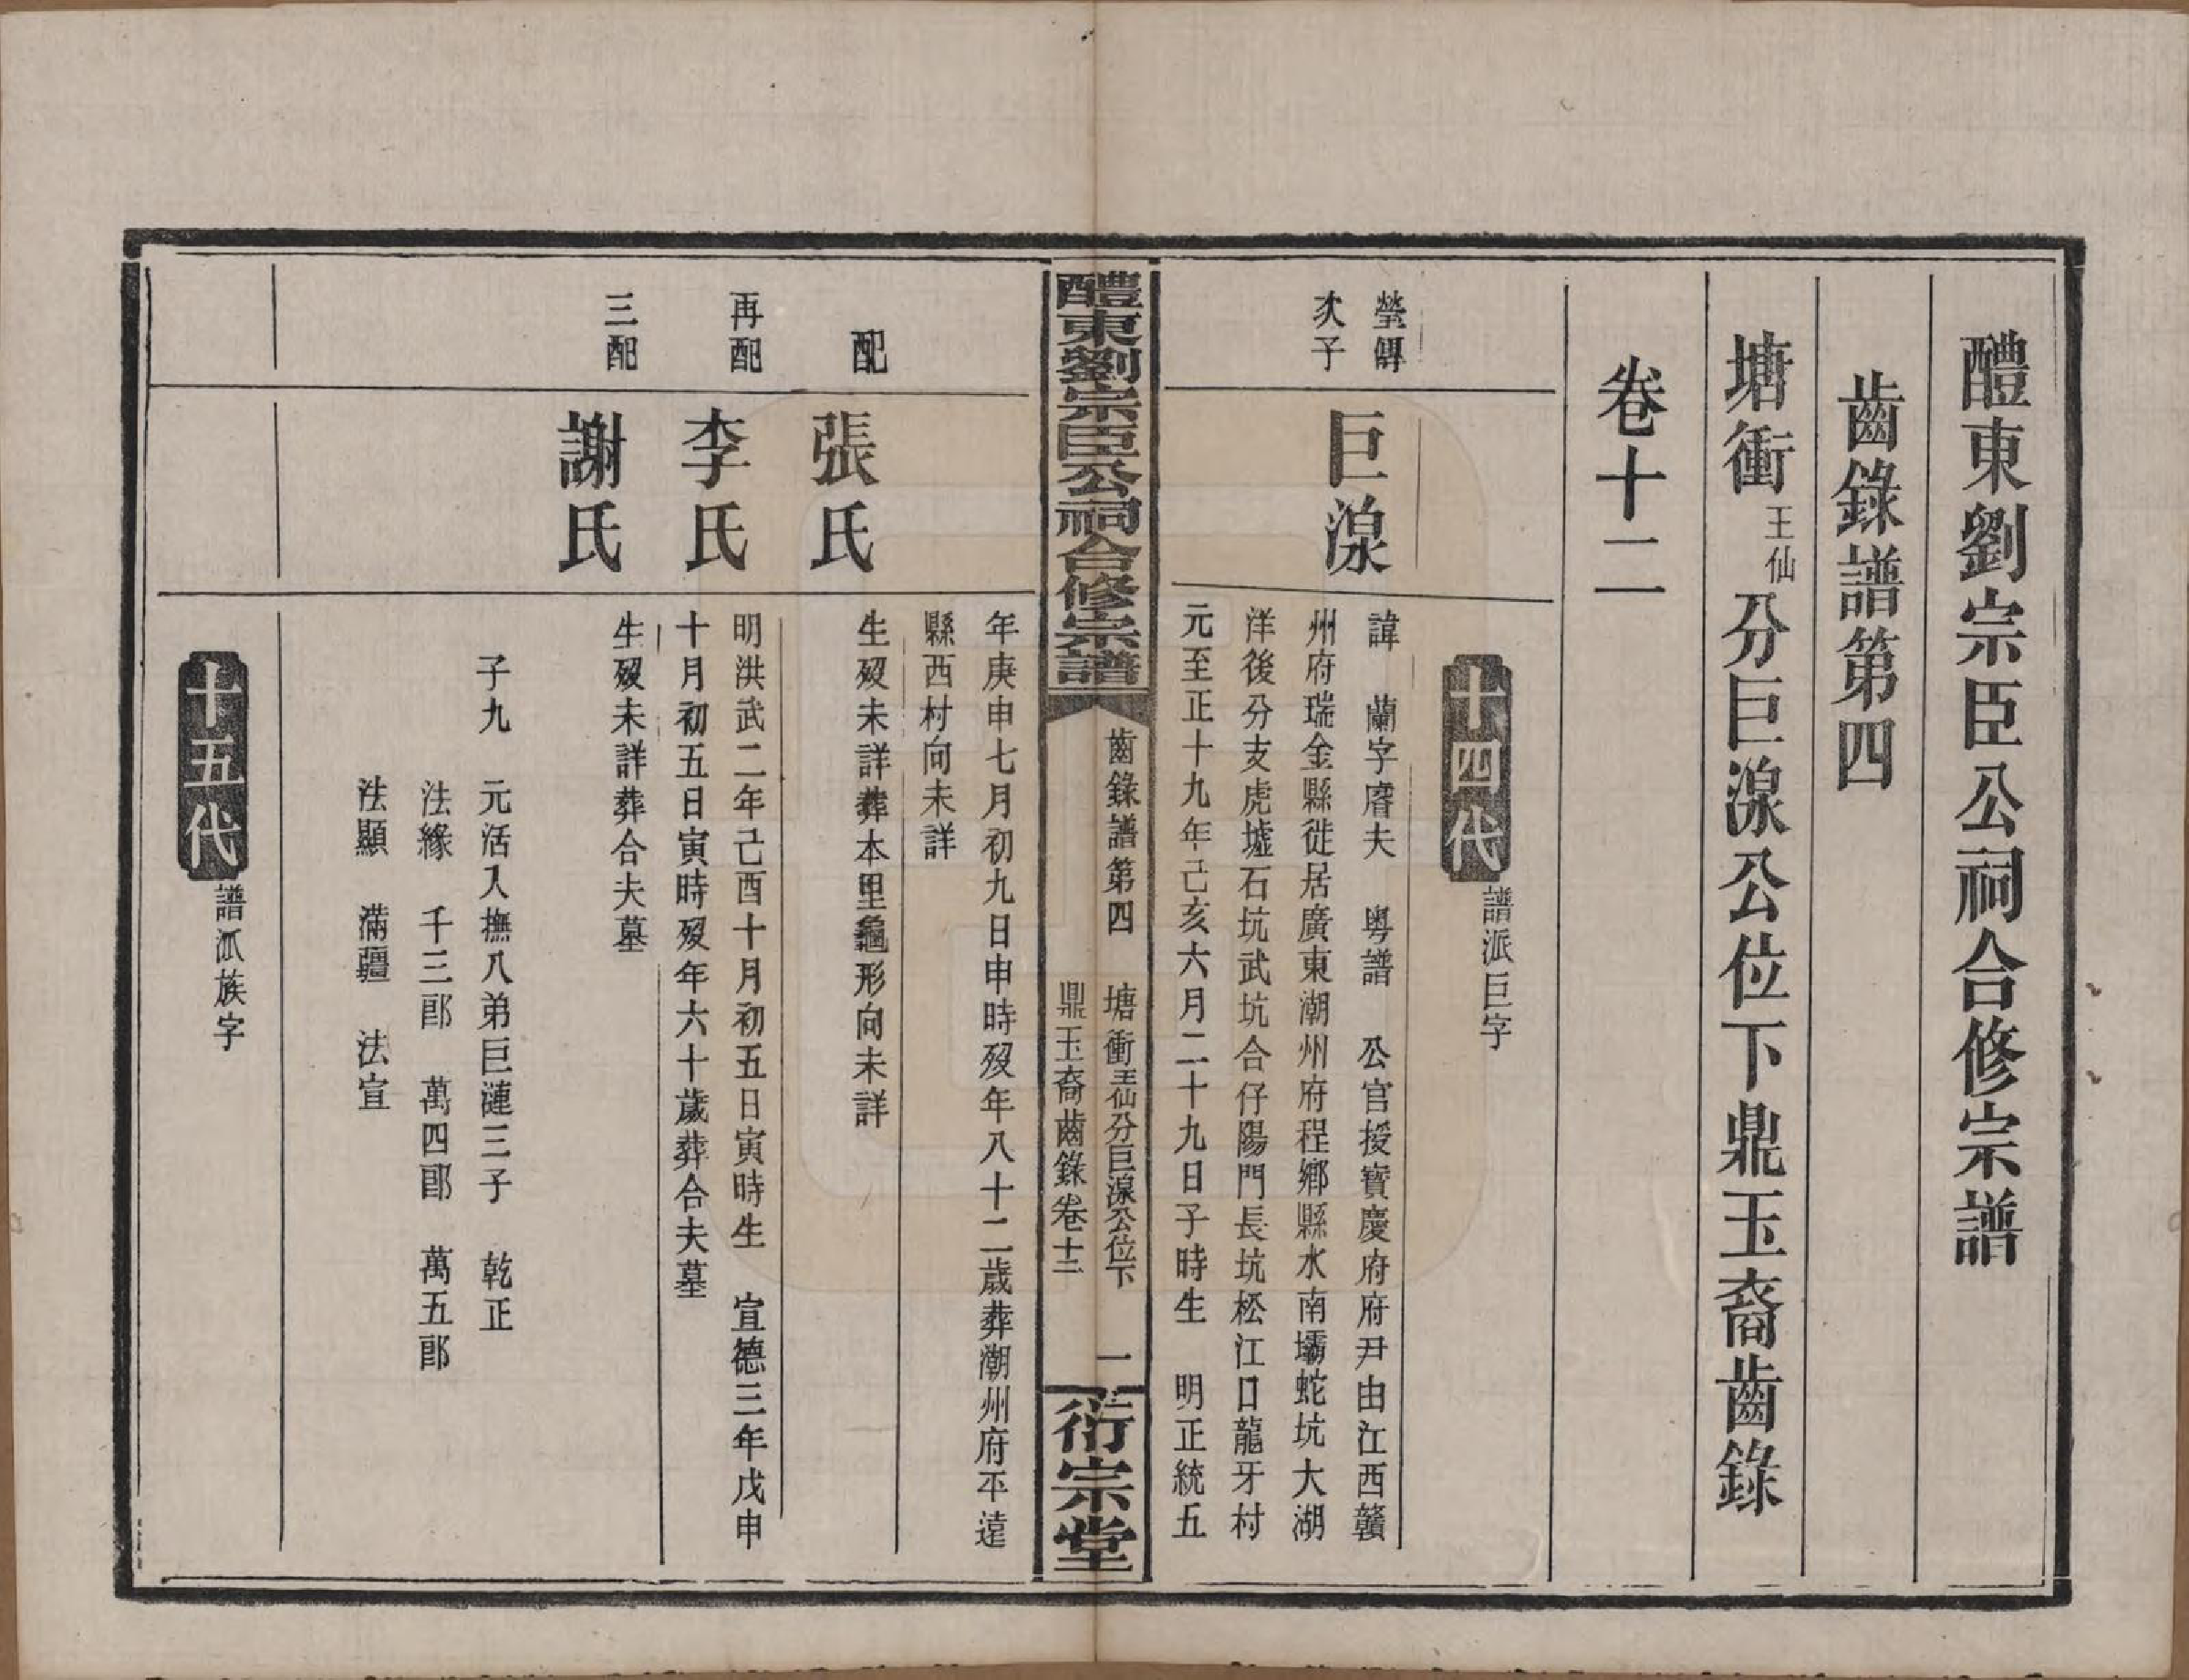 醴東劉宗臣公祠合修宗譜
齒錄譜第四
塘衝王仙分巨湶公位下鼎玉裔齒錄
卷十二
十四代 譜派巨字
瑩傳
次子
巨湶
諱 蘭字膺夫 粵譜 公官授寶慶府府尹由江西贛
州府瑞金縣徙居廣東潮州府程鄉縣水南壩蛇坑大湖
洋後分支虎墟石坑武坑合仔陽門長坑松江口龍牙村
元至正十九年己亥六月二十九日子時生 明正統五
醴東劉宗臣公祠合修宗譜
齒錄譜第四 塘衝王仙分巨湶公位下
鼎玉裔齒錄卷十二
一
衍宗堂
年庚申七月初九日申時歿年八十二歲葬潮州府平遠
縣西村向未詳
配
張氏
生歿未詳葬本里龜形向未詳
再配
李氏
明洪武二年己酉十月初五日寅時生 宣德三年戊申
十月初五日寅時歿年六十歲葬合夫墓
三配
謝氏
生歿未詳葬合夫墓
子九 元活入撫八弟巨漣三子 乾正
法緣 千三郎 萬四郎 萬五郎
法顯 滿疆 法宣
十五代 譜派族字